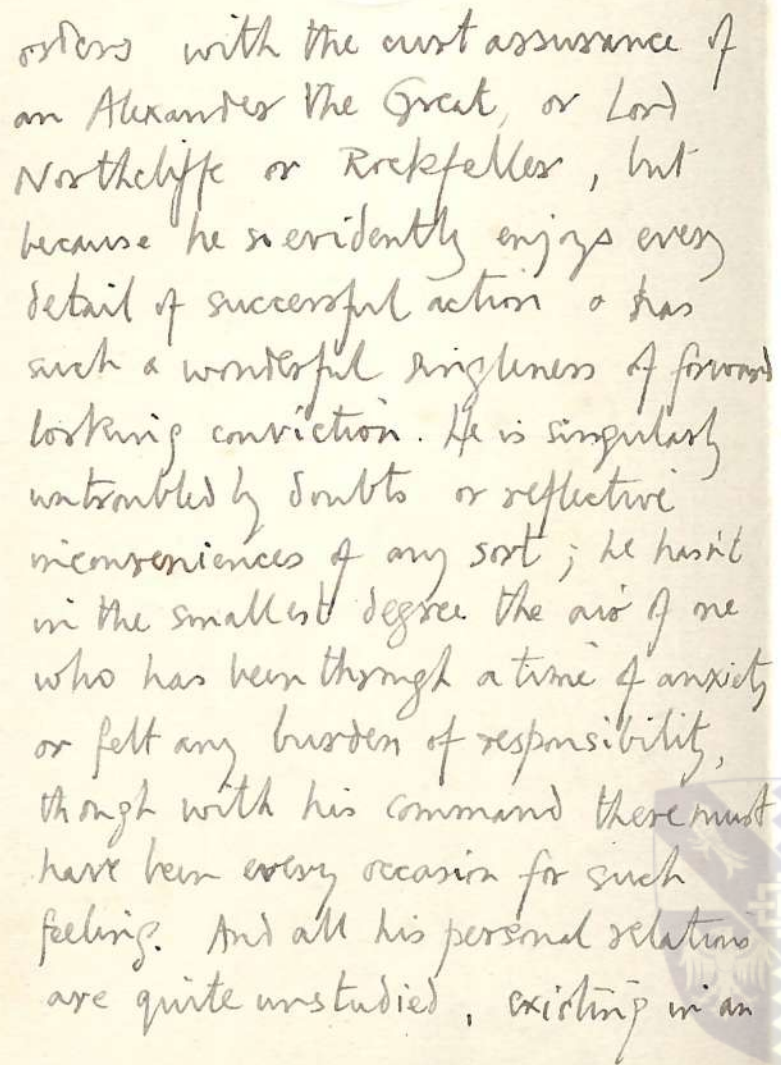 orders with the curt assurance of
an Alexander the Great, or Lord
Northcliffe or Rockfeller, but
because he so evidently enjoys every
detail of successful action & has
such a wonderful singleness of forward
looking conviction. He is singularly
untroubled by doubts or reflective
inconveniences of any sort; he hasn't
in the smallest degree the air of one
who has been through a time of anxiety
or felt any burden of responsibility,
though with his command there must
have been every occasion for such
feeling. And all his personal relations
are quite unstudied, existing in an